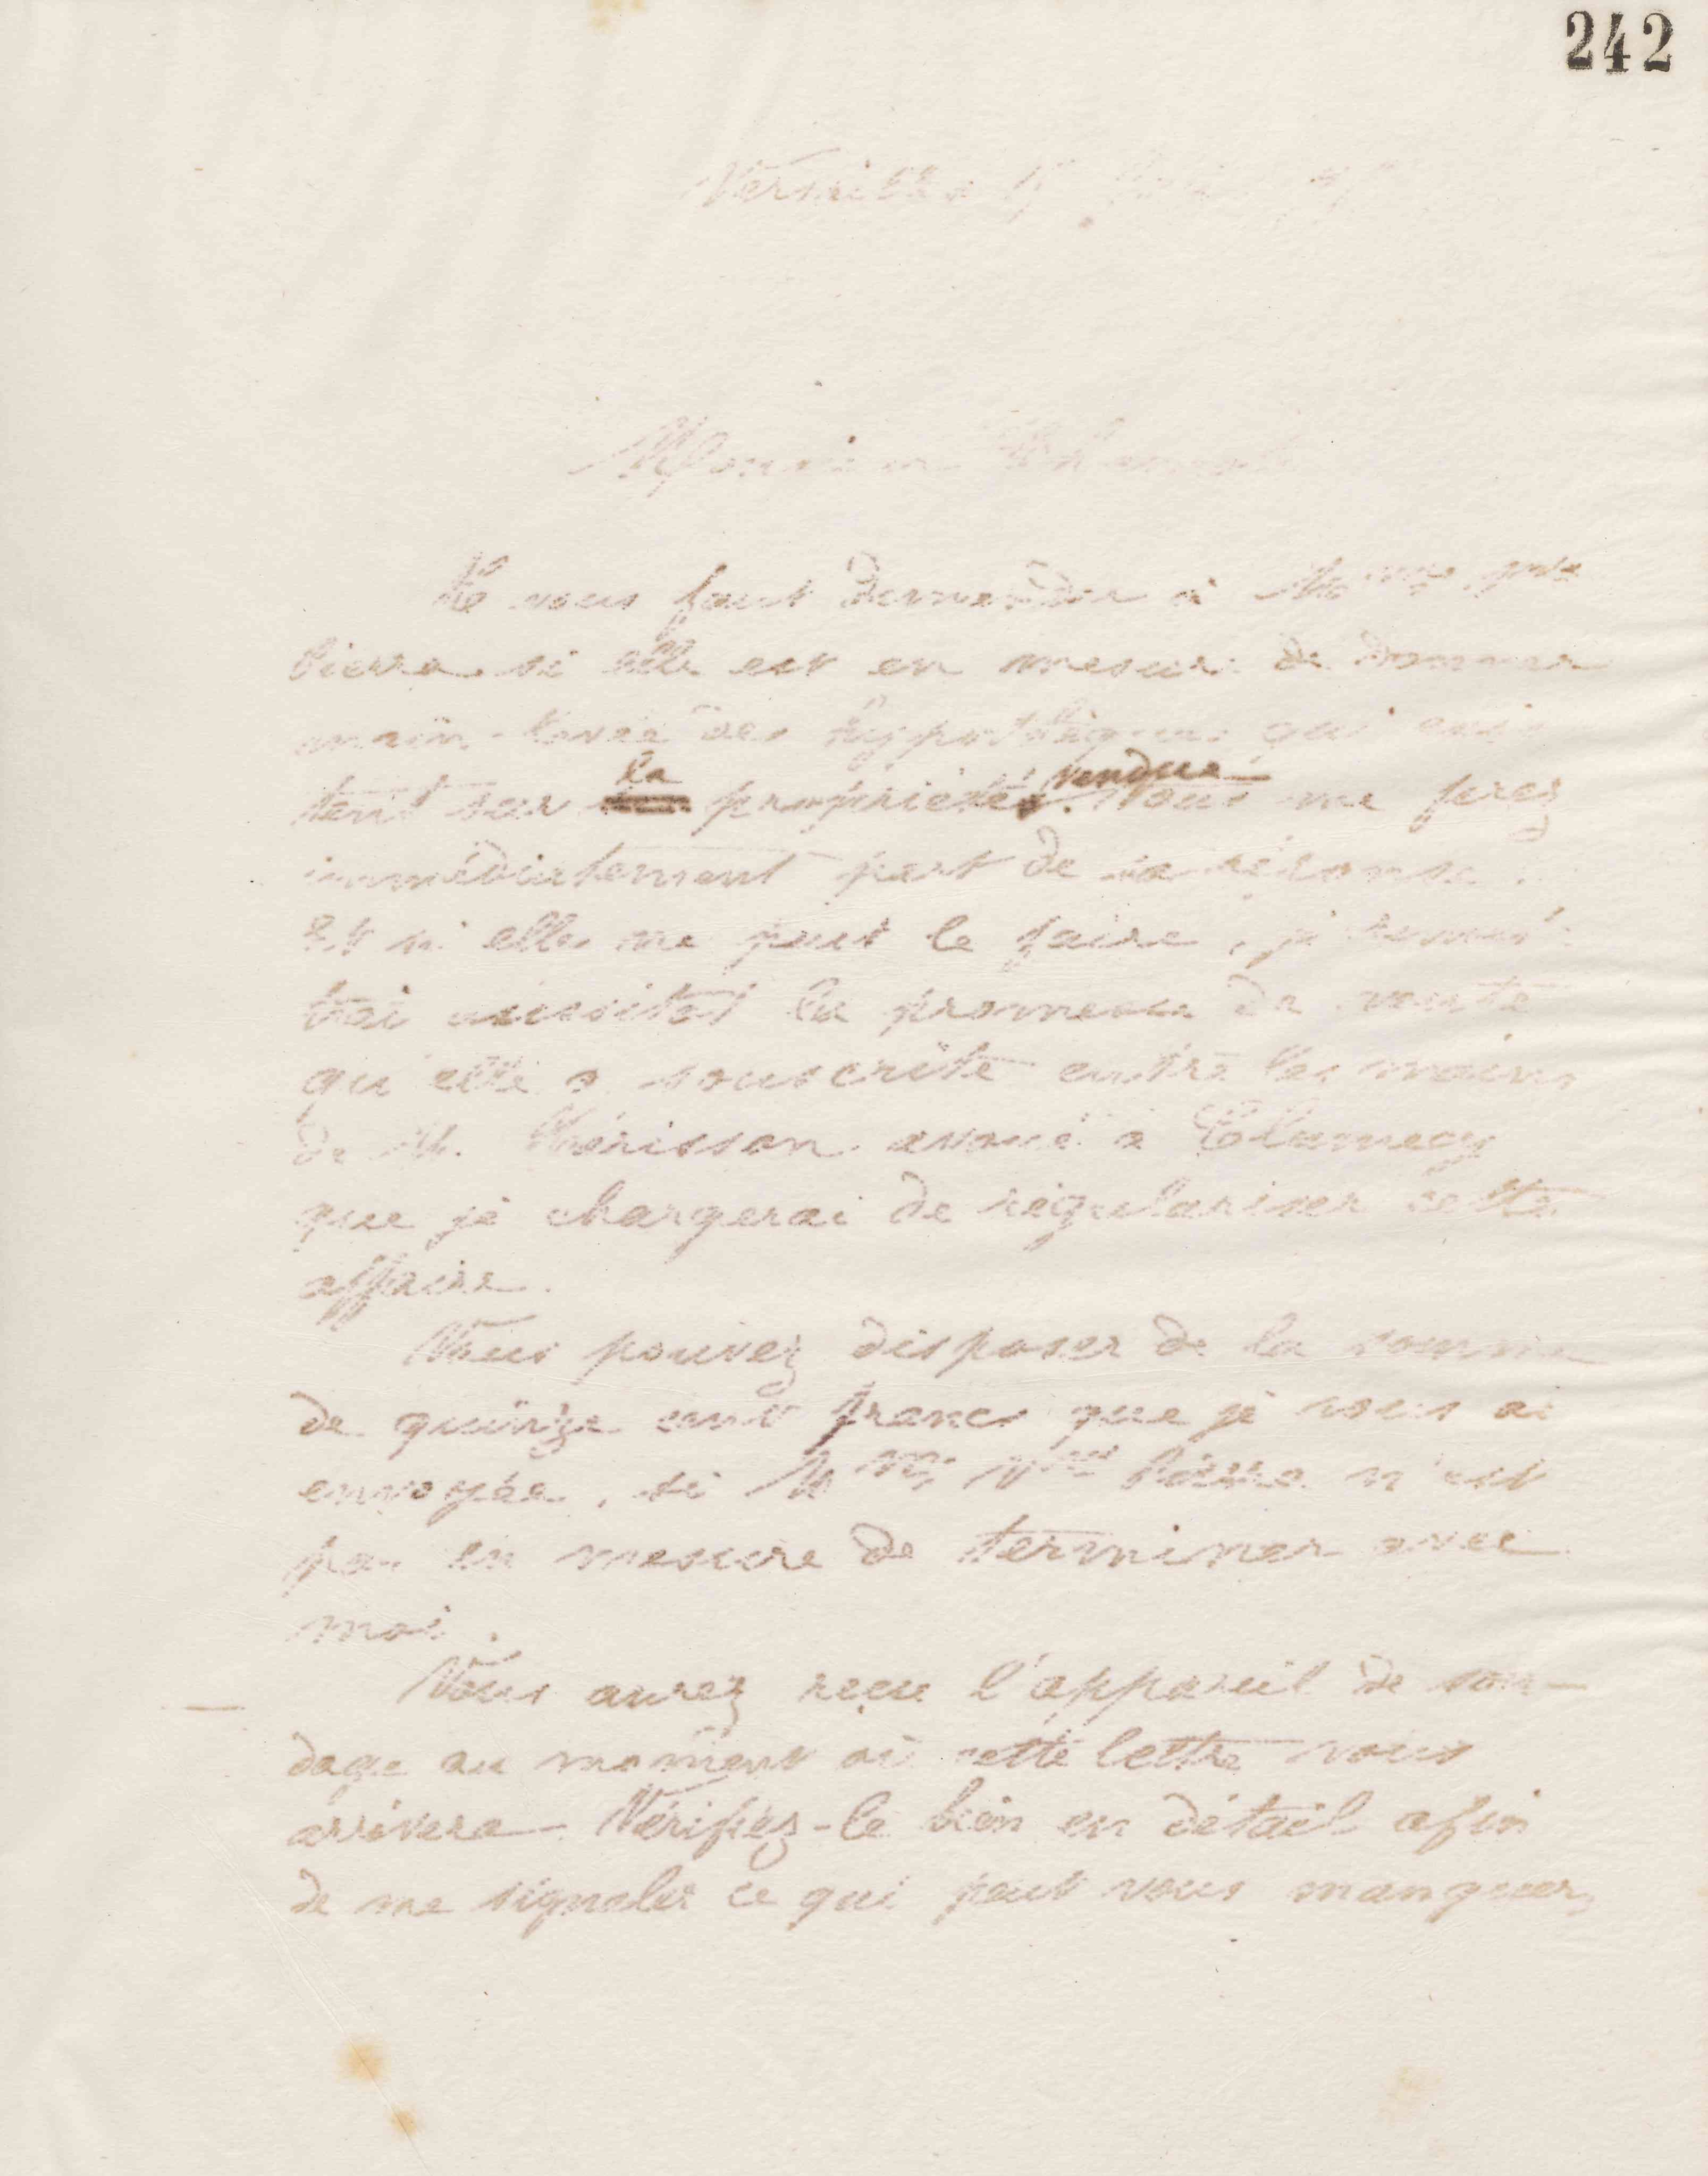 242
Versailles
Monsieur
Il vous faut demander à
Pierre si elle est en mesure de donner
main-levée des hypothèques qui exis
tent sur la propriété vendue. Vous me ferez
immédiatement part de sa réponse.
Et si elle ne peut le faire, je
trai aussitôt la promesse de vente
qu'elle a souscrite entre les mains
de M. Hérisson avoué à Clamecy
que je chargerai de régulariser cette
affaire.
Vous pouvez disposer de la somme
de quinze cent francs que je vous ai
envoyée, si Mme Vve Pierre n'est
pas en mesure de terminer avec
moi.
Vous aurez reçu l'appareil de son-
dage au moment où cette lettre vous
arrivera. Vérifiez-le bien en détail afin
de me signaler ce qui peut vous manquer,